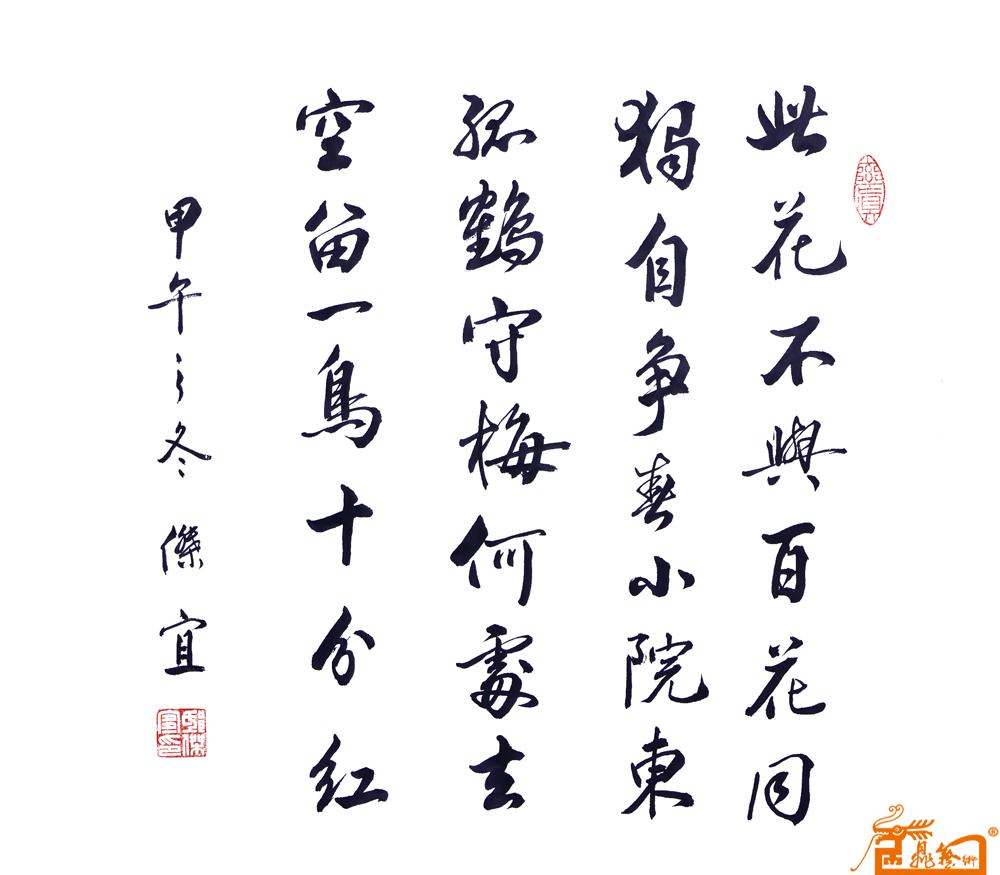 此花不與百花同
獨自争春小院東
孤鶴守梅何處去
空留一鳥十分紅
甲午之冬 傑宜
鼎藝術